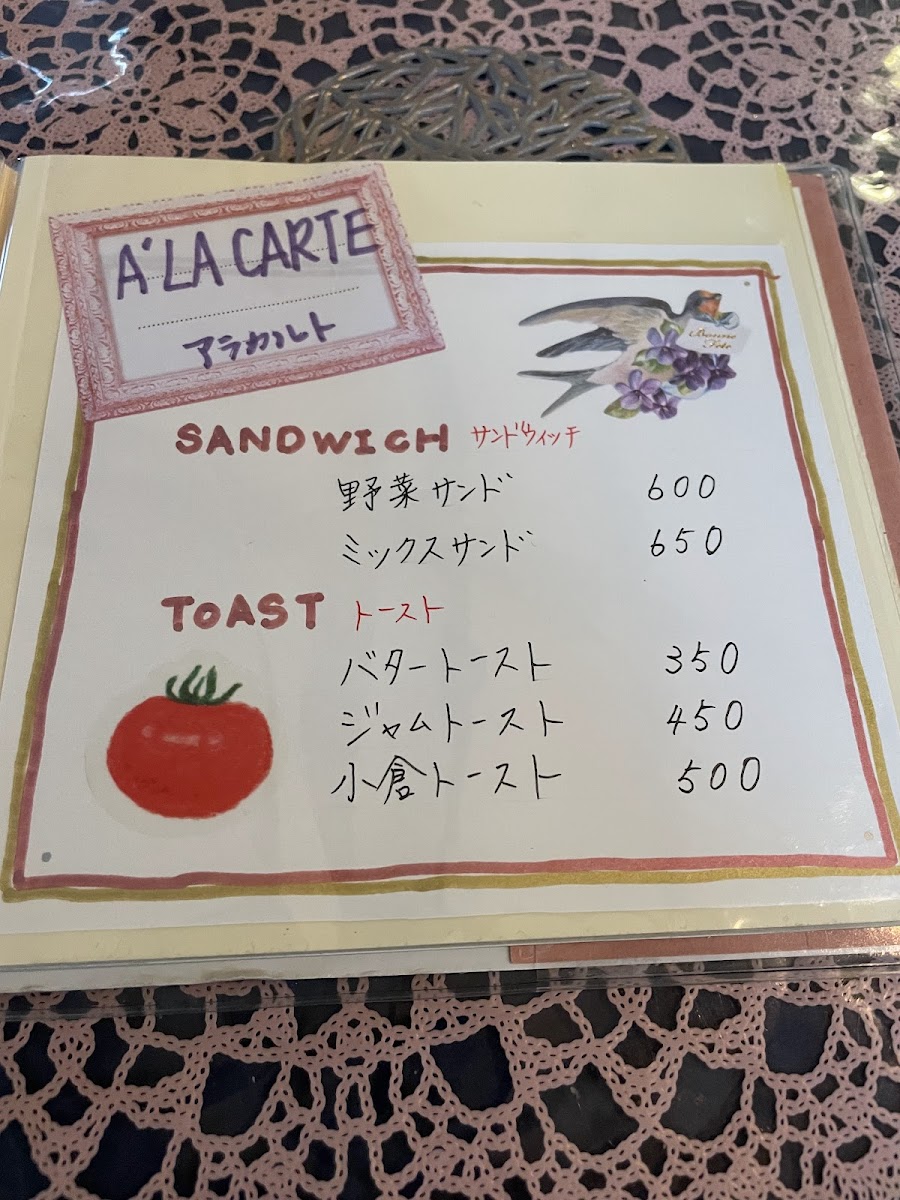 A' LA CARTE
アラカルト
Bonne
Fête
SANDWICH サンドウィッチ
野菜サンド 600
ミックスサンド 650
TOAST トースト
バタートースト 350
ジャムトースト 450
小倉トースト 500